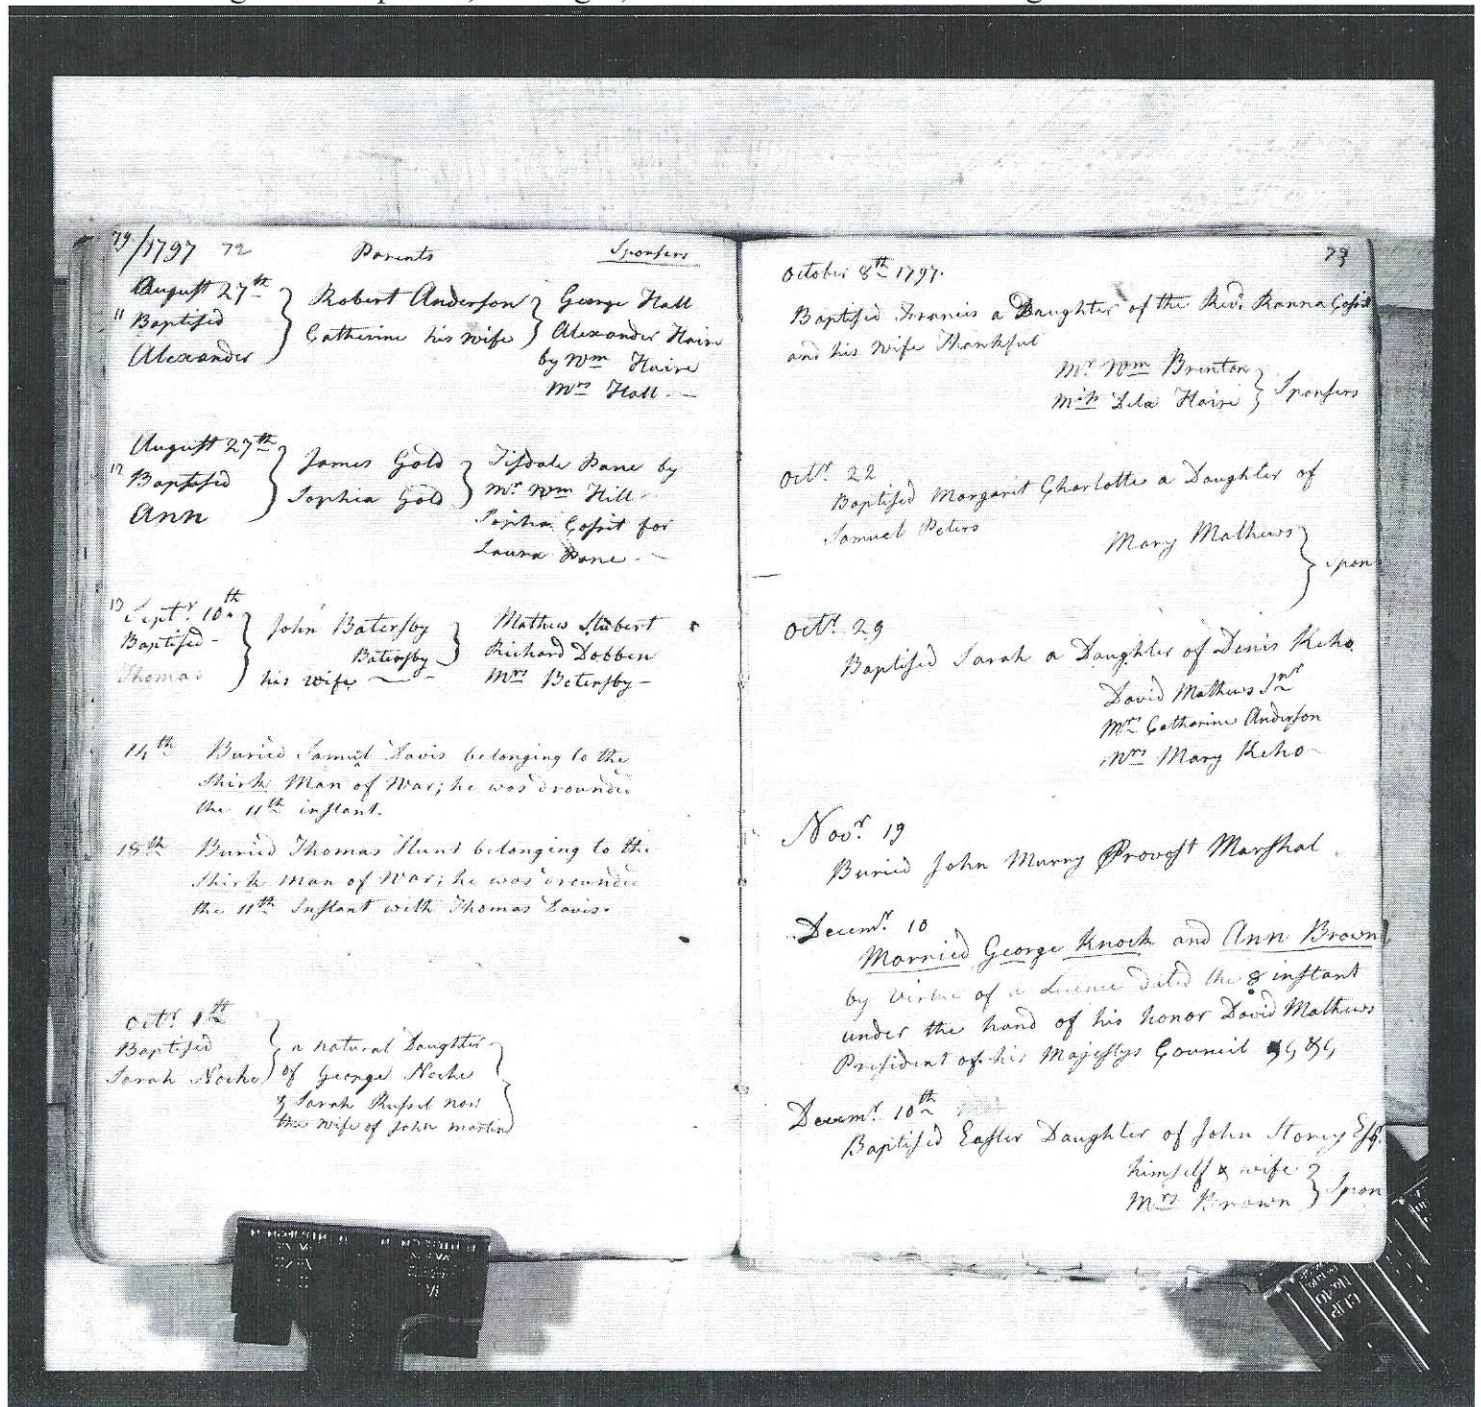 79/1797 72 Parents Sponsers
August 27th Robert Anderson George Hall
11 Baptised Catherine his wife Alexander Haire
Alexander by Wm Haire
Mrs Hall
August 27th James Gold Tisdale Pane by
12 Baptised Sophia Gold Mr Wm Hill
Ann Sophia Cossit for
Laura Pane
13 Septr 10th John Batersby Mathew Stubert
Baptised Batersby Richard Dobben
Thomas his wife Mrs Betersby
14th Buried Samul Davis belonging to the
Shirk Man of War; he was drounded
the 11th instant.
18th Buried Thomas Hunt belonging to the
Shirk Man of War; he was drounded
the 11th Instant with Thomas Davis.
Octr 1th
Baptised a natural Daughter
Sarah Noche of George Noche
& Sarah Russel now
the wife of John martin
73
October 8th 1797.
Baptised Francis a Daughter of the Revd. Ranna Cossit
and his wife Thankful
Mr Wm Brenton
Dela Haire Sponsers
Octr. 22
Baptised Margarit Charlotte a Daughter of
Samuel Peters
Mary Mathews
Spon
Octr. 29
Baptised Sarah a Daughter of Denis Keho
David Mathews Jnr
Mrs Catharine Anderson
Mrs Mary Keho
Novr 19
Buried John Murry Provost Marshal
Decemr. 10
Married George Knock and Ann Brown
by Virtue of a Licence dated the 8 instant
under the hand of his honor David Mathews
President of his Majestys Council &c &c
Decemr. 10th
Baptised Easter Daughter of John Storey Esqr.
himself & wife
Mrs Brown Spon